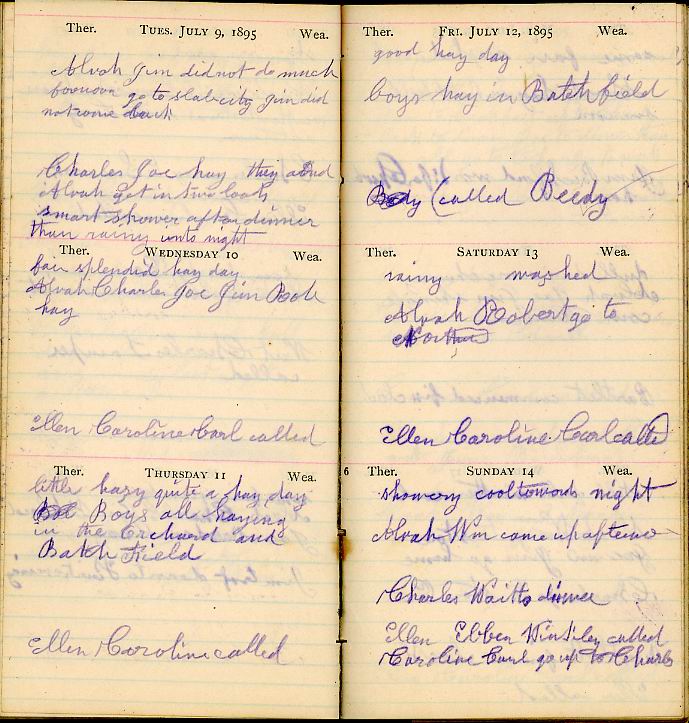 Ther. TUES. JULY 9, 1895 Wea.
Alvah Jim did not do much
forenoon go to slab city Jim did
not come back
Charles Joe hay they and
Alvah got in two loads
smart shower after dinner
than rainy into night
Ther. WEDNESDAY 10 Wea.
fair splendid hay day
Alvah Charles Joe Jim Rob
hay
Ellen Caroline Carl called
Ther. THURSDAY 11 Wea.
little hazy quite a hay day
Boys all haying
in the Orchard and
Batch Field
Ellen Caroline called
Ther. FRI. JULY 12, 1895 Wea.
good hay day
boys hay in Batch field
Body (called Beedy
Ther. SATURDAY 13 Wea.
rainy washed
Alvah Robert go to
Ellen Caroline Carl called
6 Ther. SUNDAY 14 Wea.
showery cool towards night
Alvah Wm come up afterno
Charles Waitts dinner
Ellen Ebben Winsley called
Caroline Carl go up to Charls